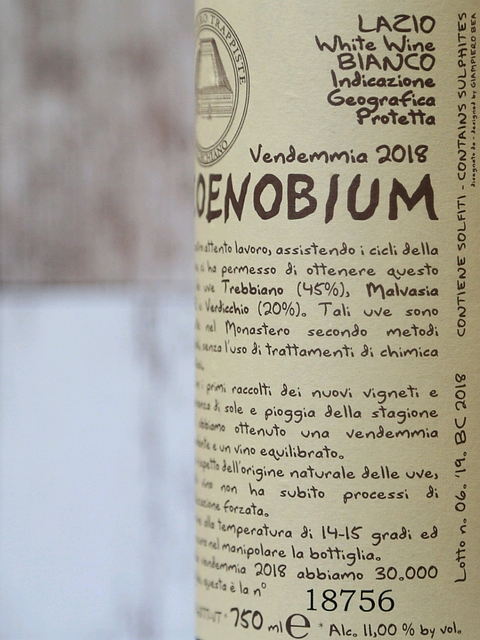 LAZIO
White Wine
BIANCO
Indicazione
Geografica
Protetta
TRAPPISTE
Vendemmia 2018
OENOBIUM
attento lavoro, assistendo i cicli della
ha permesso di ottenere questo
uve Trebbiano (45%), Malvasia
e Verdicchio (20%). Tali uve sono
nel Monastero secondo metodi
senza l'uso di trattamenti di chimica
i primi raccolti dei nuovi vigneti e
di sole e pioggia della stagione
abbiamo ottenuto una vendemmia
e un vino equilibrato.
rispetto dell'origine naturale delle uve,
vino non ha subito processi di
forzata.
alla temperatura di 14-15 gradi ed
nel manipolare la bottiglia.
vendemmia 2018 abbiamo 30.000
questa è la n°
18756
750 ml e * Alc. 11,00 % by vol.
Lotto n. 06. '19. BC 2018
CONTIENE SOLFITI - CONTAINS SULPHITES
disegnata da - designed by GIAMPIERO BEA